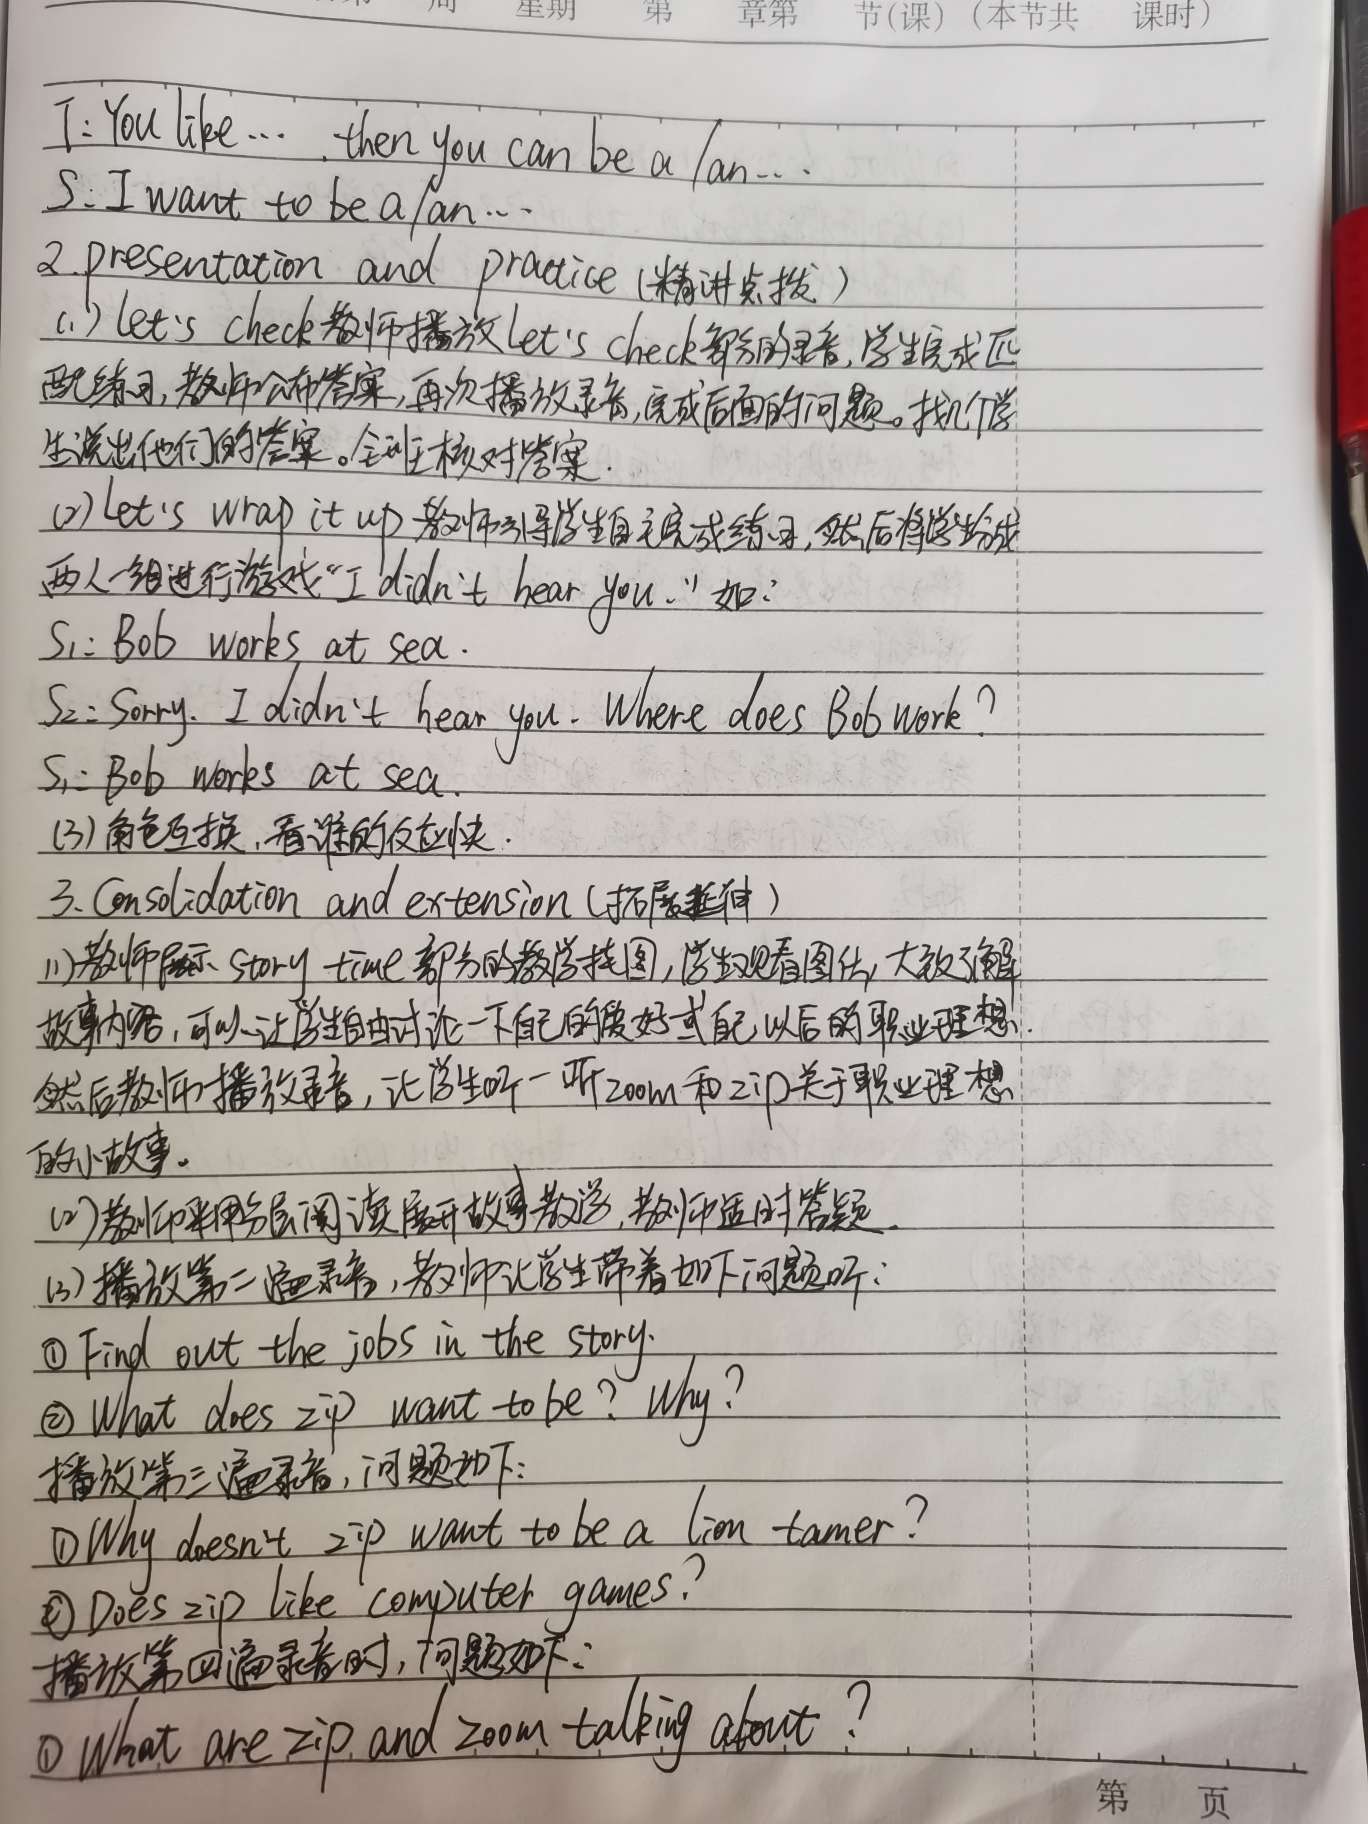 周 星期 第 章第 节(课) (本节共 课时)
T: You like... then you can be a/an...
S: I want to be a/an...
2. presentation and practice (精讲点拨)
(1) Let's check 教师播放Let's check部分的录音,学生完成匹
配练习,教师公布答案,再次播放录音,完成后面的问题。找几个学
生说出他们的答案。全班核对答案.
(2) Let's wrap it up 教师引导学生自主完成练习,然后将学生分成
两人一组进行游戏“I didn't hear you.”如:
S1: Bob works at sea.
S2: Sorry. I didn't hear you. Where does Bob work?
S1: Bob works at sea.
(3) 角色互换,看谁的反应快.
3. Consolidation and extension (拓展延伸)
(1) 教师展示 story time 部分的教学挂图,学生观看图片,大致了解
故事内容,可以让学生自由讨论一下自己的爱好或自己以后的职业理想.
然后教师播放录音,让学生听一听zoom和zip关于职业理想
的小故事。
(2) 教师采用分层阅读展开故事教学,教师适时答疑.
(3) 播放第二遍录音,教师让学生带着如下问题听:
① Find out the jobs in the story.
② What does zip want to be? Why?
播放第三遍录音,问题如下:
① Why doesn't zip want to be a lion tamer?
② Does zip like computer games?
播放第四遍录音时,问题如下:
① What are zip and zoom talking about?
第 页